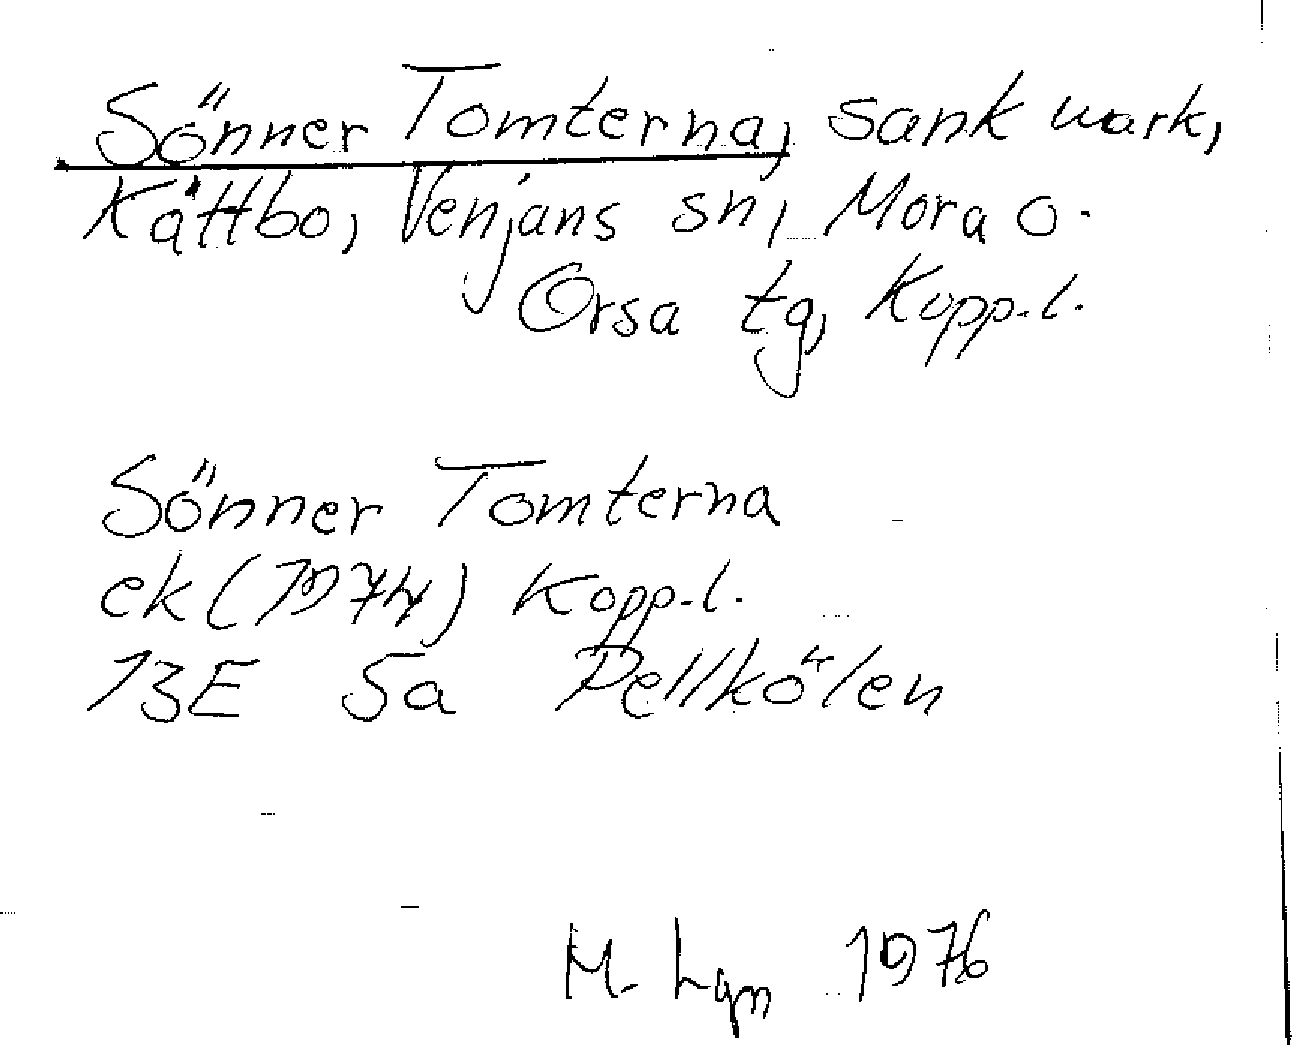 Sönner Tomterna, sank mark,
Kättbo, Venjans sn, Mora o.
Orsa tg, Kopp.l.
Sönner Tomterna
ek (1974) Kopp.l.
13E 5a Pellkölen
M. Lgn 1976